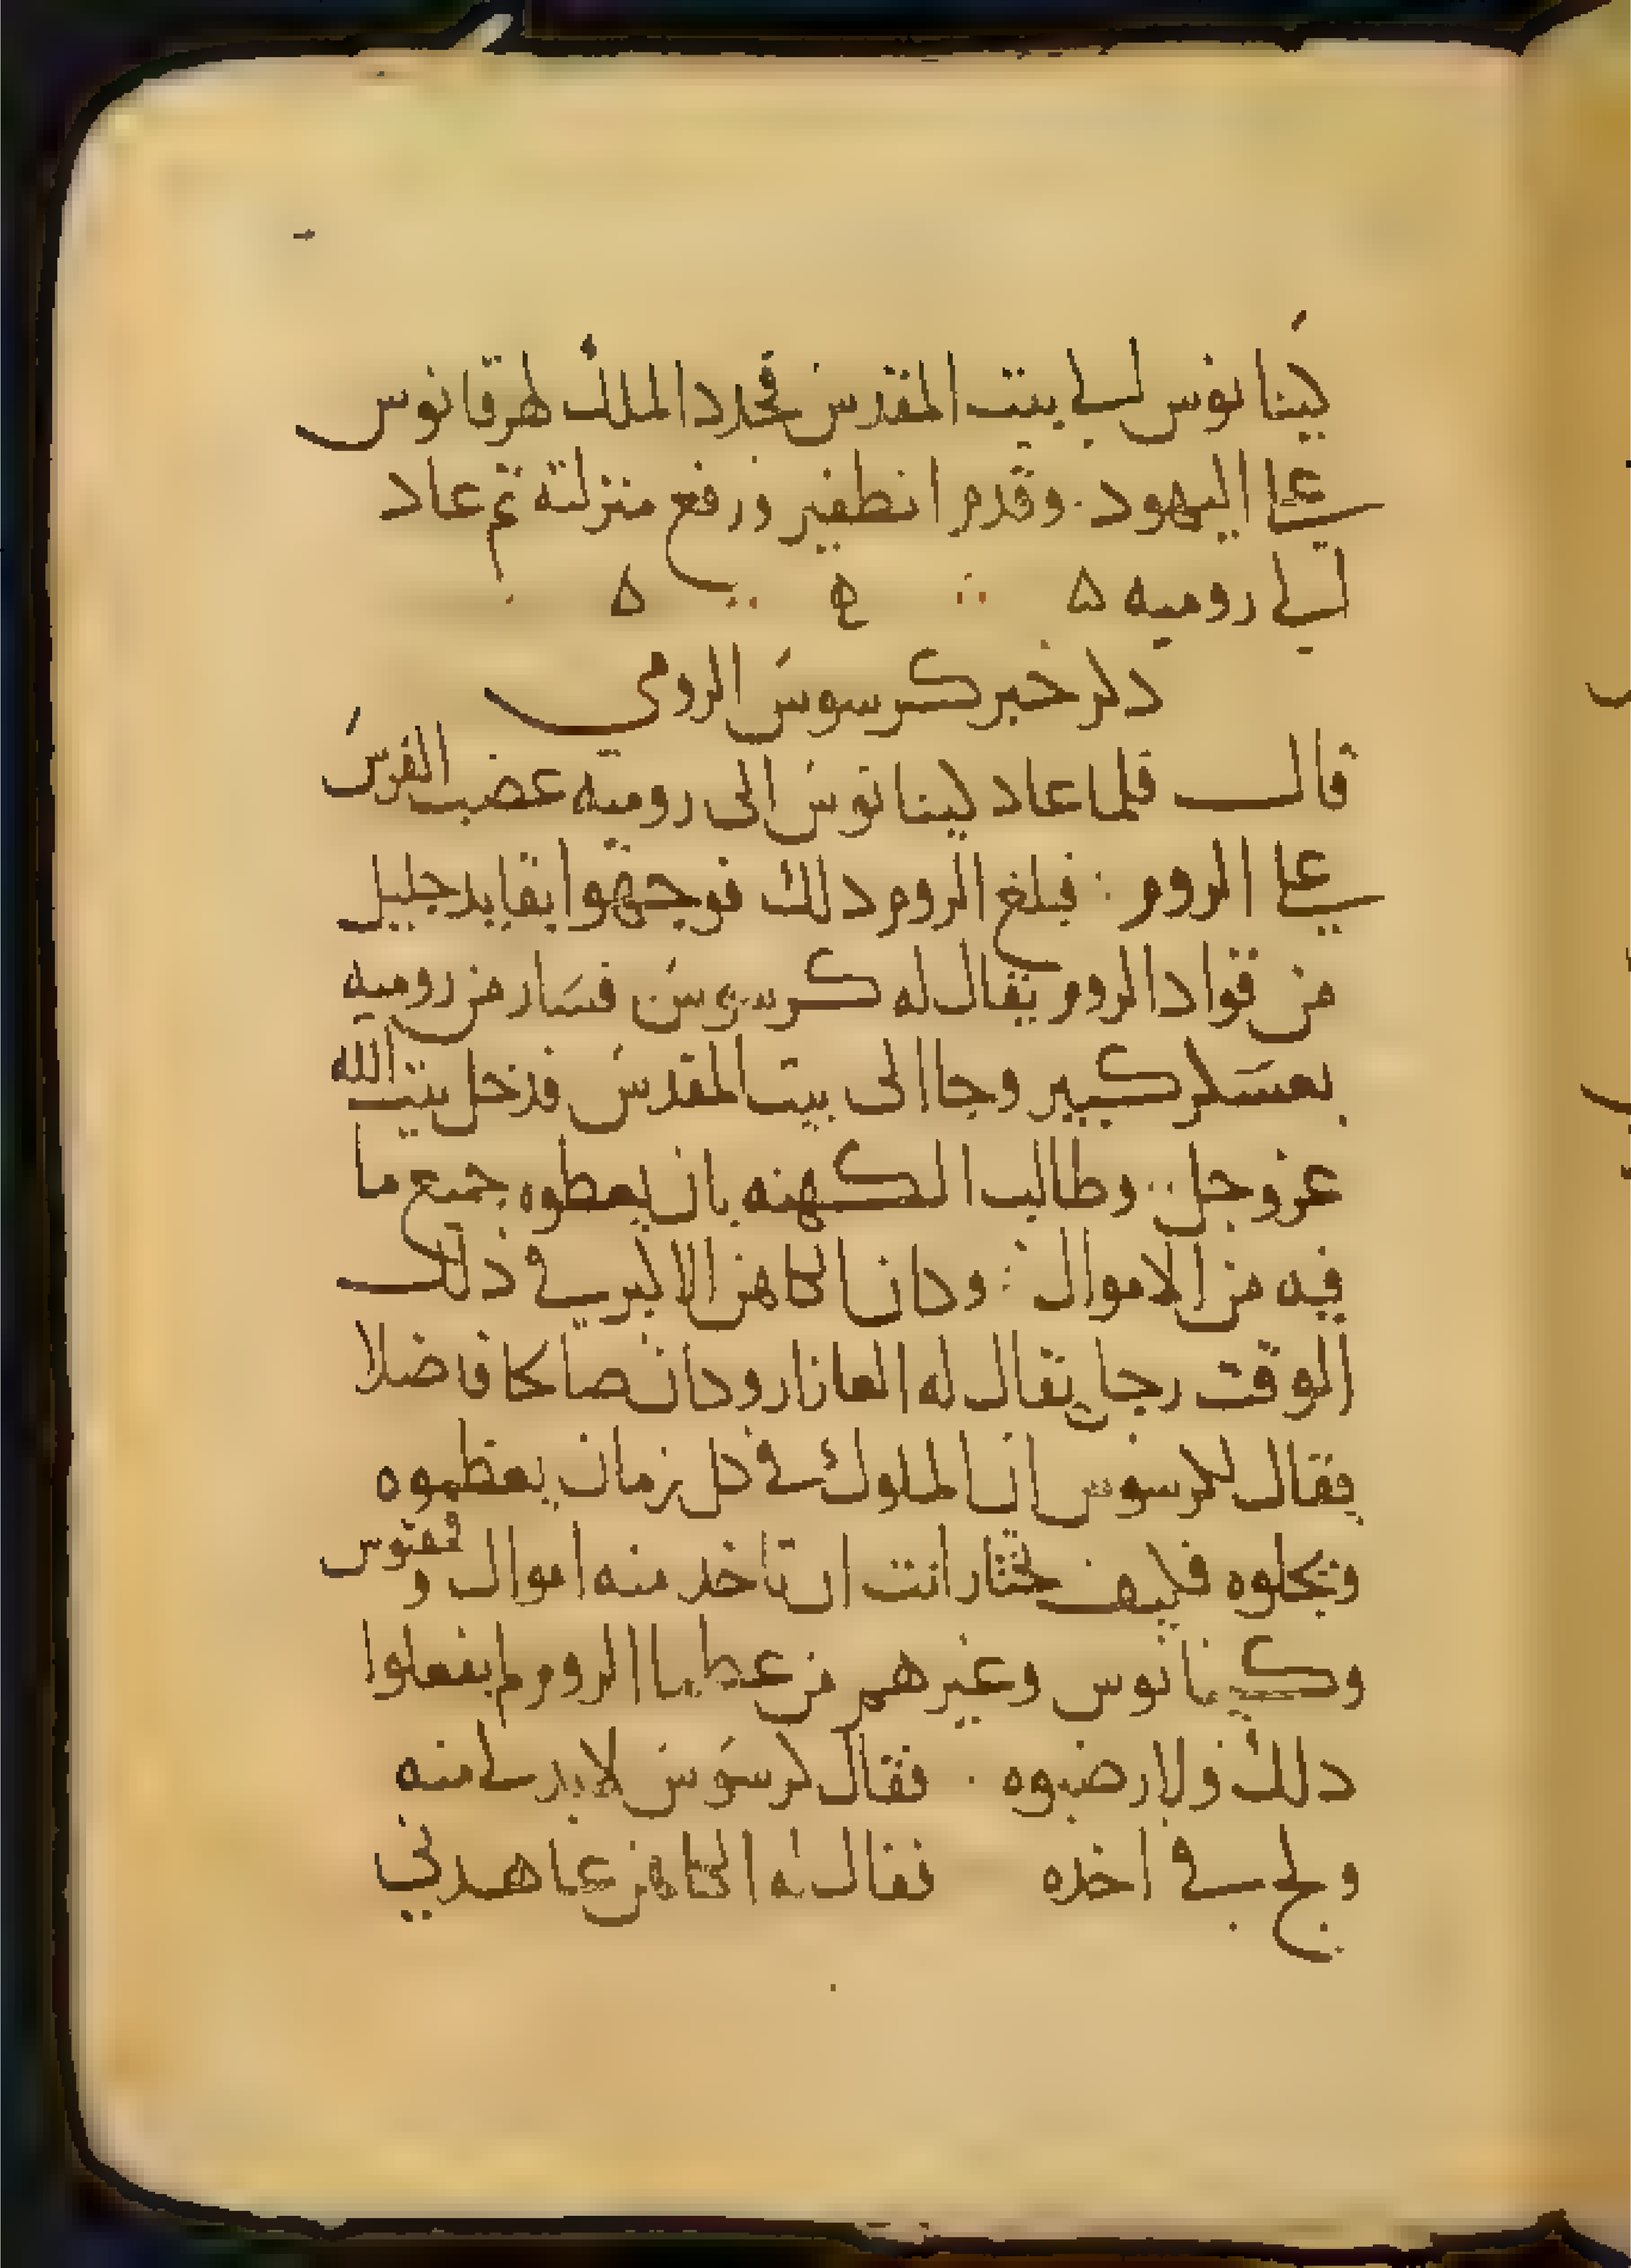 كينانوس الى بيت المقدس فجدد الملك لهرقانوس
على اليهود. وقدم انطفير ورفع منزلته ثم عاد
الى روميه ه ه ه
دكر خبر كرسوس الرومي
قال فلما عاد كينانوس الى رومية عضب الفرس
على الروم : فبلغ الروم دلك فوجهوا بقايد جليل
من قواد الروم يقال له كرسوس فسار من روميه
بعسكر كبير وجا الى بيت المقدس فدخل بيت الله
عز وجل .. وطالب الكهنه بان يعطوه جميع ما
فيه من الاموال : وكان الكاهن الاكبر في ذلك
الوقت رجل يقال له العازار وكان صالحا فاضلا
فقال لكرسوس ان الملوك في كل زمان يعظموه
ويجلوه فكيف تختار انت ان تاخد منه اموال و
وكينانوس وغيرهم من عظما الروم لم يفعلوا
دلك ولا رضيوه . فقال كرسوس لا بد لي منه
ولج في اخده فقال له الكاهن عاهدني